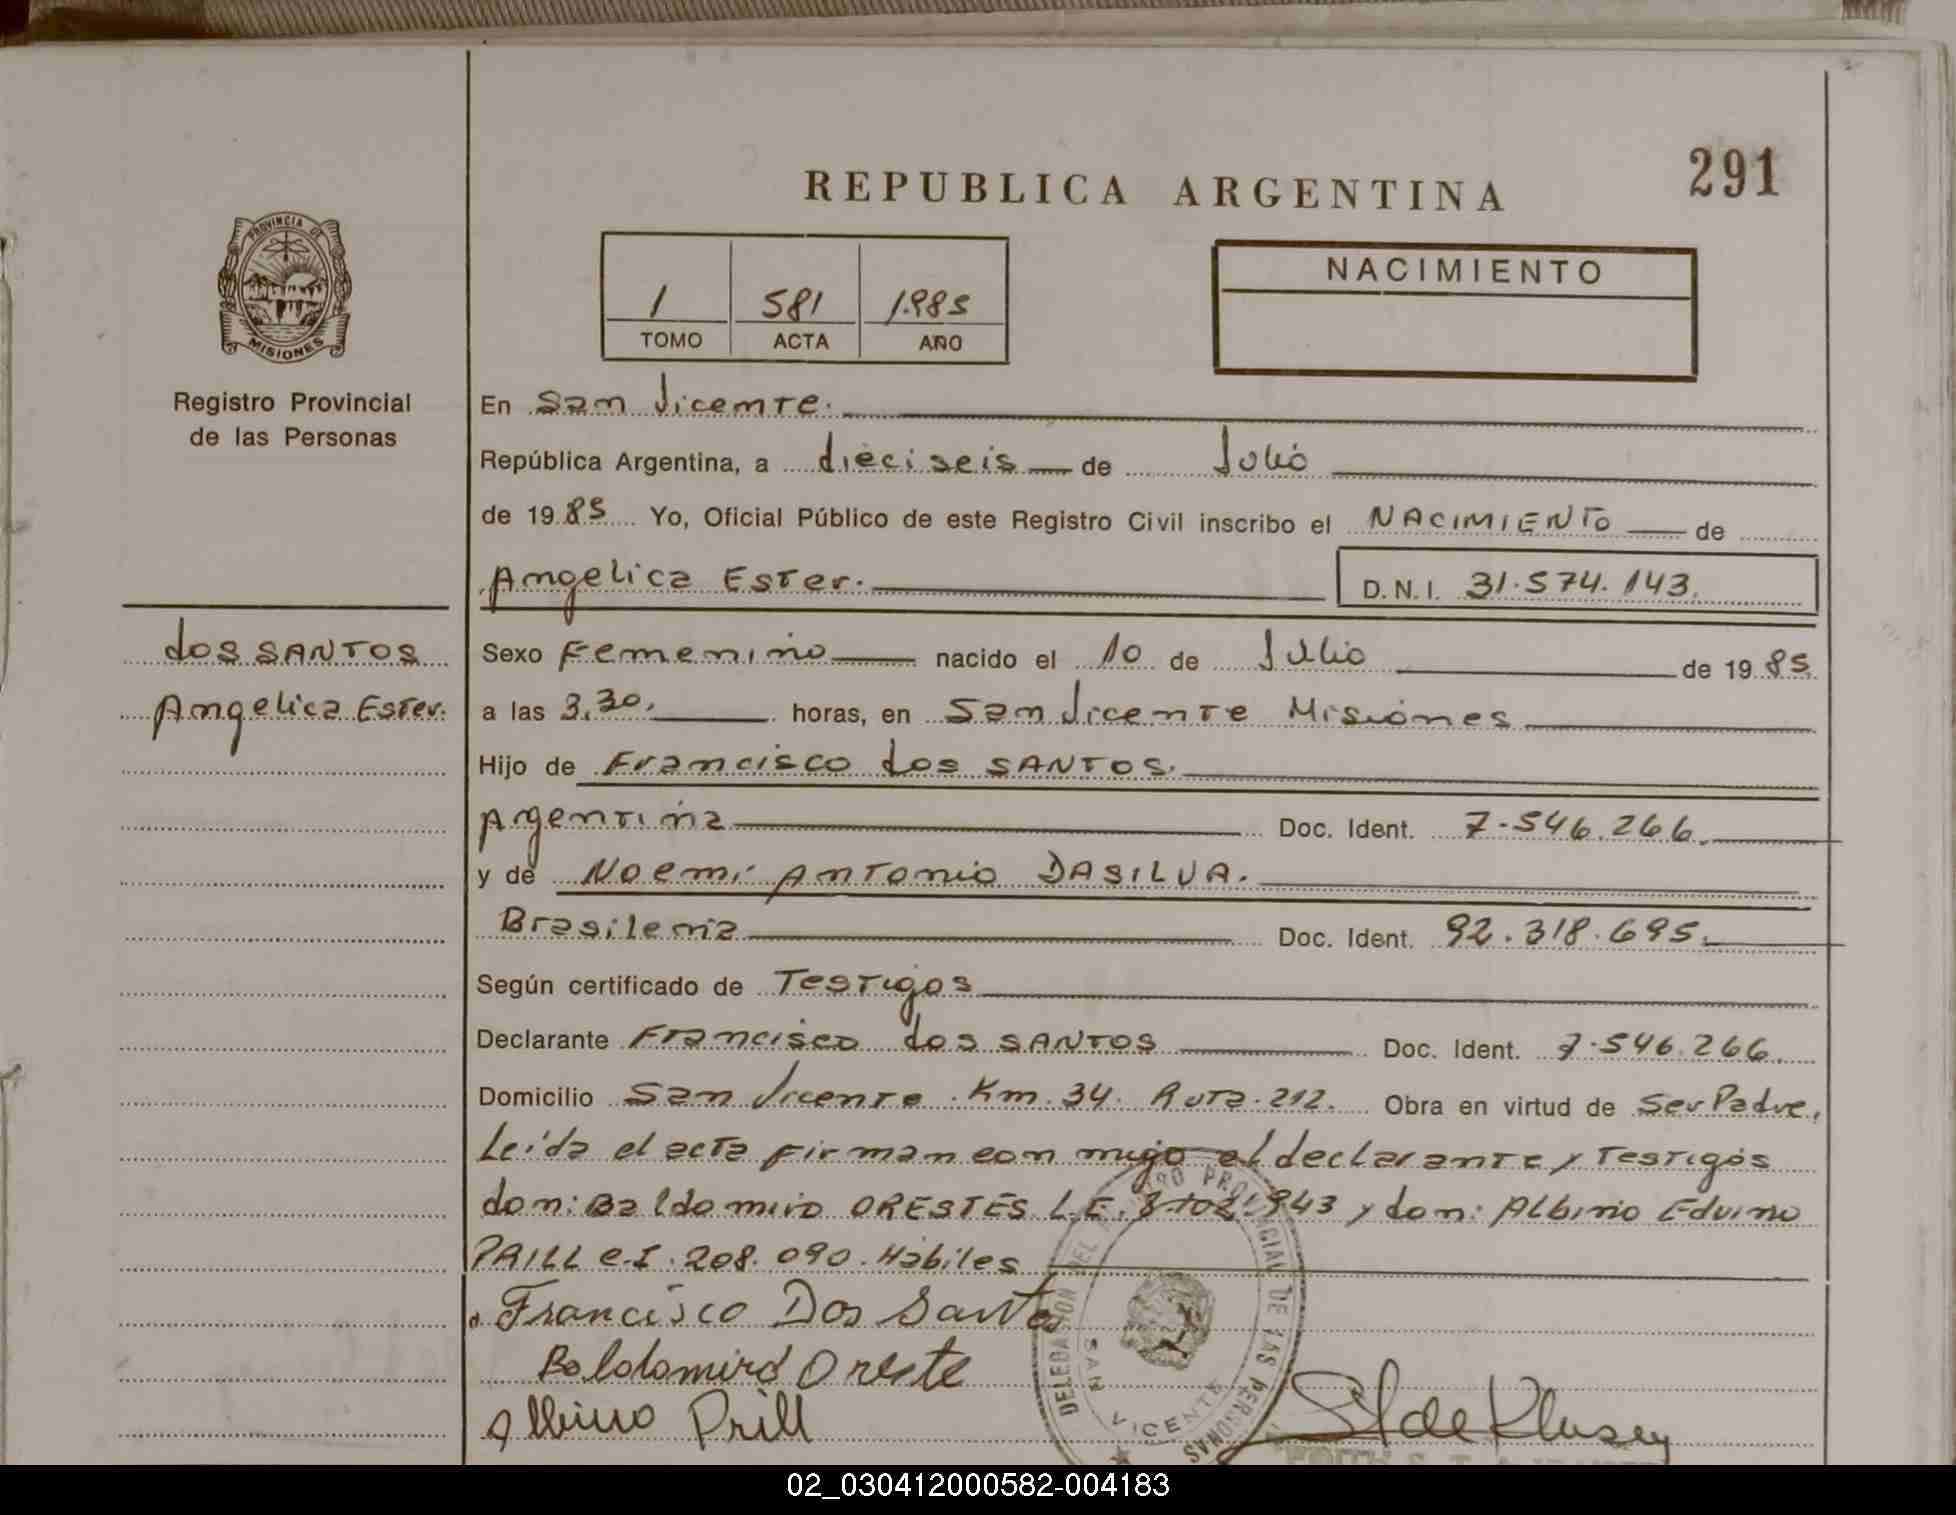 291
REPUBLICA ARGENTINA
PROVINCIA DE
MISIONES
Registro Provincial
de las Personas
1 581 1.985
TOMO ACTA AÑO
NACIMIENTO
En San Vicente.
República Argentina, a dieciseis de Julio
de 19 85 Yo, Oficial Público de este Registro Civil inscribo el NACIMIENTO de
Angelica Ester. D.N.I. 31.574.143.
dos SANTOS
Angelica Ester.
Sexo Femenino nacido el 10 de Julio de 19 85.
a las 3,30. horas, en San Vicente Misiones
Hijo de Francisco dos SANTOS.
Argentina Doc. Ident. 7.546.266.
y de Noemi Antonio DASILVA.
Brasilenia Doc. Ident. 92.318.695.
Según certificado de Testigos
Declarante Francisco dos SANTOS Doc. Ident. 7.546.266.
Domicilio San Vicente Km. 34. Ruta 212. Obra en virtud de Ser Padre.
Leída el acta firman con migo el declarante y Testigos
don: Baldomiro ORESTES L.E. 8.102.943 y don: Albino Eduino
PAILL C.I. 208.090. Hábiles
Francisco Dos Santos
Baldomiro Oreste
Albino Prill
DELEGACION DEL REGISTRO PROVINCIAL DE LAS PERSONAS
SAN VICENTE
02_030412000582-004183